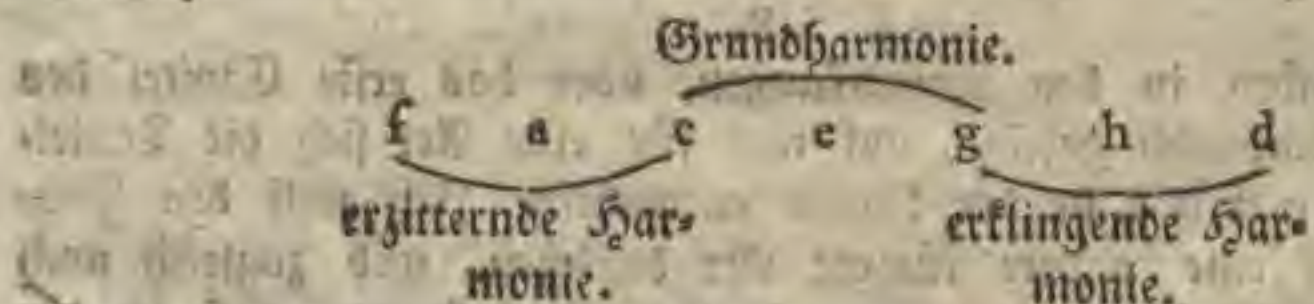 Grundharmonie.
f a c e g h d
erzitternde Har⸗ erklingende Har⸗
monie. monie.